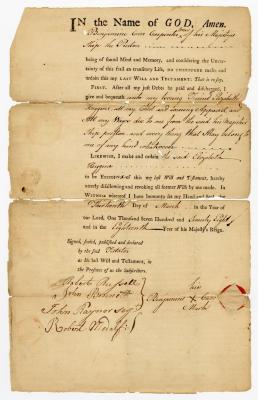 IN the Name of GOD, Amen.
Benjamine Cave Carpenter of his Majesties
Ship the Preston
being of sound Mind and Memory, and considering the Uncer-
tainty of this frail and transitory Life, do therefore make and
ordain this my LAST WILL AND TESTAMENT: That is to say,
FIRST, After all my just Debts be paid and discharged, I
give and bequeath unto my loving Friend Elizabeth
Huggins all my Gold and wearing Apparel, and
All my Wages due to me from the said his Majesties
Ship Preston and every thing that May belong to
me of any kind whatsoever
LIKEWISE, I make and ordain the said Elizabeth
Huggins
to be Executrix of this my last Will and Testament, hereby
utterly disallowing and revoking all former Wills by me made. In
WITNESS whereof I have hereunto set my Hand and Seal
Thirteenth Day of March in the Year of
our Lord, One Thousand Seven Hundred and Seventy Eight
and in the Eighteenth Year of his Majesty's Reign.
Signed, sealed, published and declared
by the said Testator
as his last Will and Testament, in
the Presence of us the Subscribers.
Robert Russell
John Bennett
John Raynor
Robert
his
Benjamine X Cave
Mark